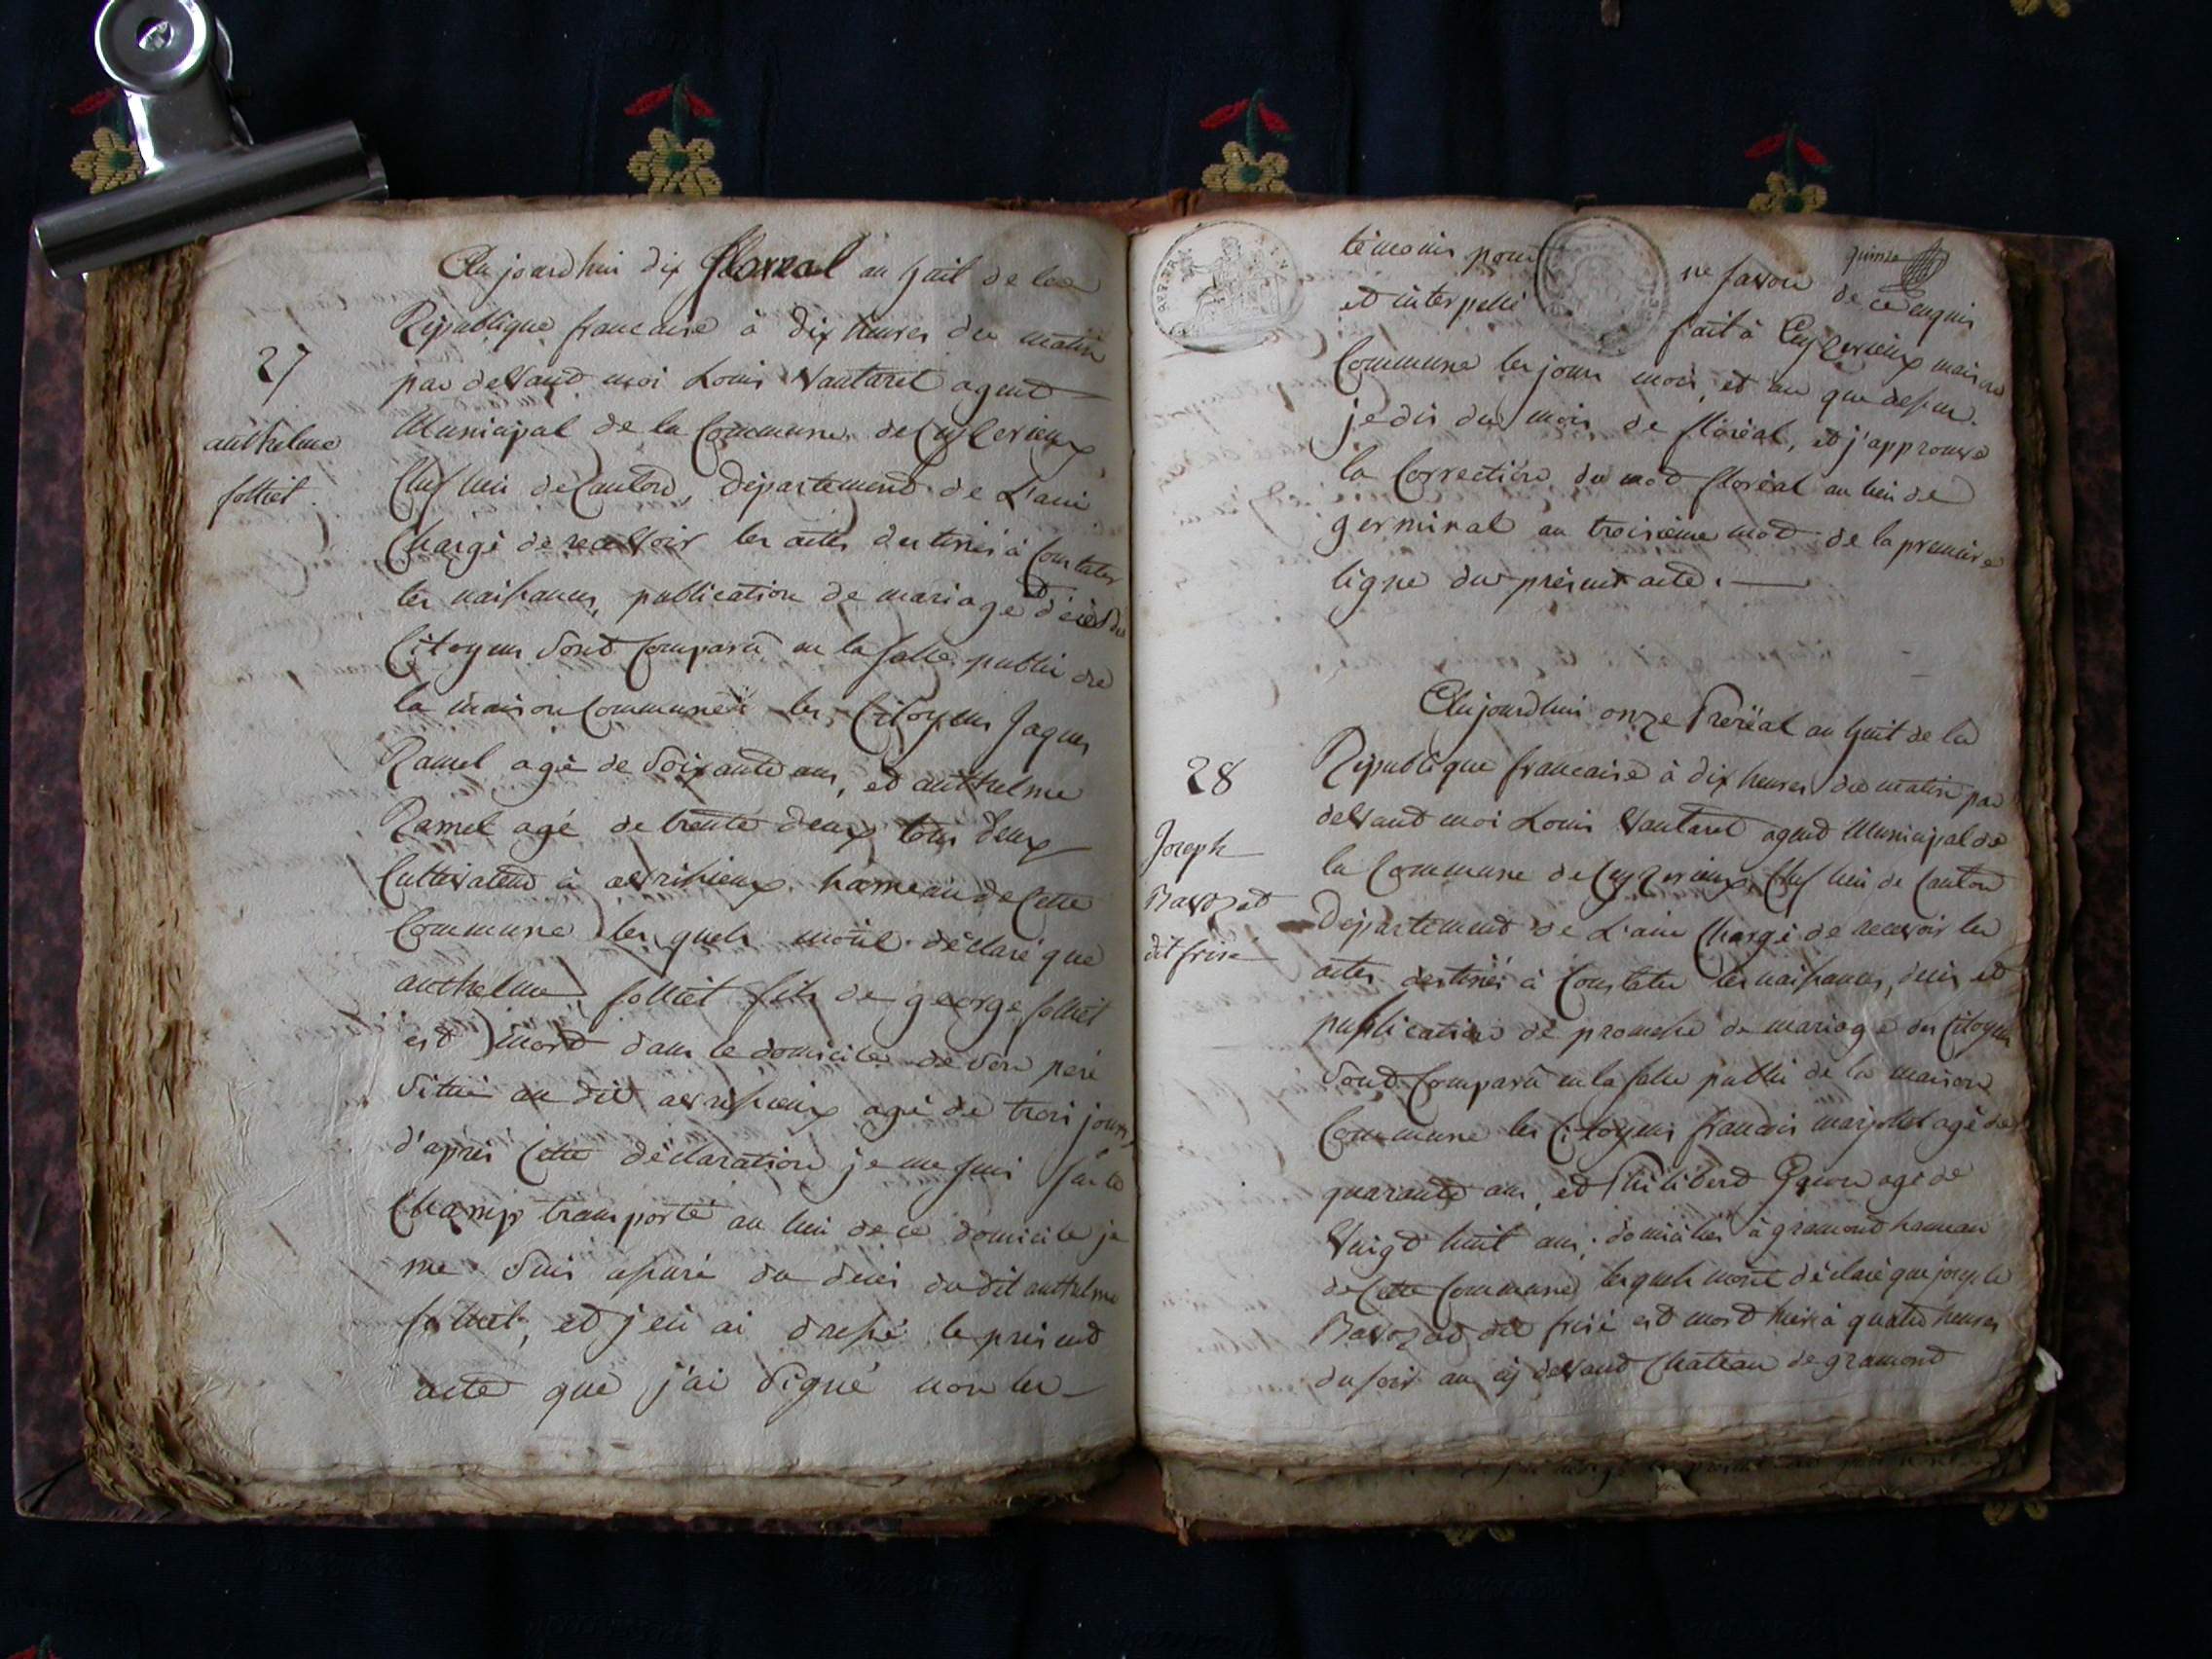 Aujourdhui dix floreal an huit de la
Republique francaise à dix heures du matin
27
par devand moi Louis Vautaret agent
Municipal de la Commune de Ceyzerieux
anthelme
folliet.
Chef lieu de Canton, département de L'ain
Chargé de recevoir les actes destinés à Constater
les naissances, publication de mariage décès des
Citoyens sont Comparu en la salle public de
la maison Commune les Citoyens Jaques
Ramel agé de Soixante ans, et anthelme
Ramel agé de trente deux tous deux
Cultivateur à avrissieux hameau de Cette
Commune lesquels m'ont déclaré que
anthelme folliet fils de george folliet
est mord dans le domicile de son pere
Situé au dit avrissieux agé de trois jours
d'après Cette déclaration je me suis sur le
Champ transporté au lieu de ce domicile je
me suis assuré du décès du dit anthelme
folliet, et j'en ai dressé le présend
acte que j'ai signé non les
témoins pour ne savoir de ce enquis quinze
et interpellé fait à Ceyzerieux maison
Commune les jours mois et an que dessus.
je dis du mois de floréal, et j'approuve
la Correction du mot floréal au lieu de
germinal au troisieme mot de la premiere
ligne du présent acte.
Aujourdhui onze floréal an huit de la
28
Republique francaise à dix heures du matin par
devand moi Louis Vautaret agend Municipal de
Joseph
la Commune de Ceyzerieux Chef lieu de Canton
Bavozat
Departement de L'ain Chargé de recevoir les
dit frisé
actes destinés à Constater les naissances, décès et
publication de promesse de mariage des Citoyens
sont Comparu en la salle public de la maison
Commune les Citoyens francois marjollet agé de
quarante ans, et philiberd agé de
Vuigt huit ans, domiciliés à gramond hameau
de Cette Commune lesquels m'ont déclaré que joseph
Bavozat dit frisé est mord hier à quatre heures
du soir au cy devand Chateau de gramond